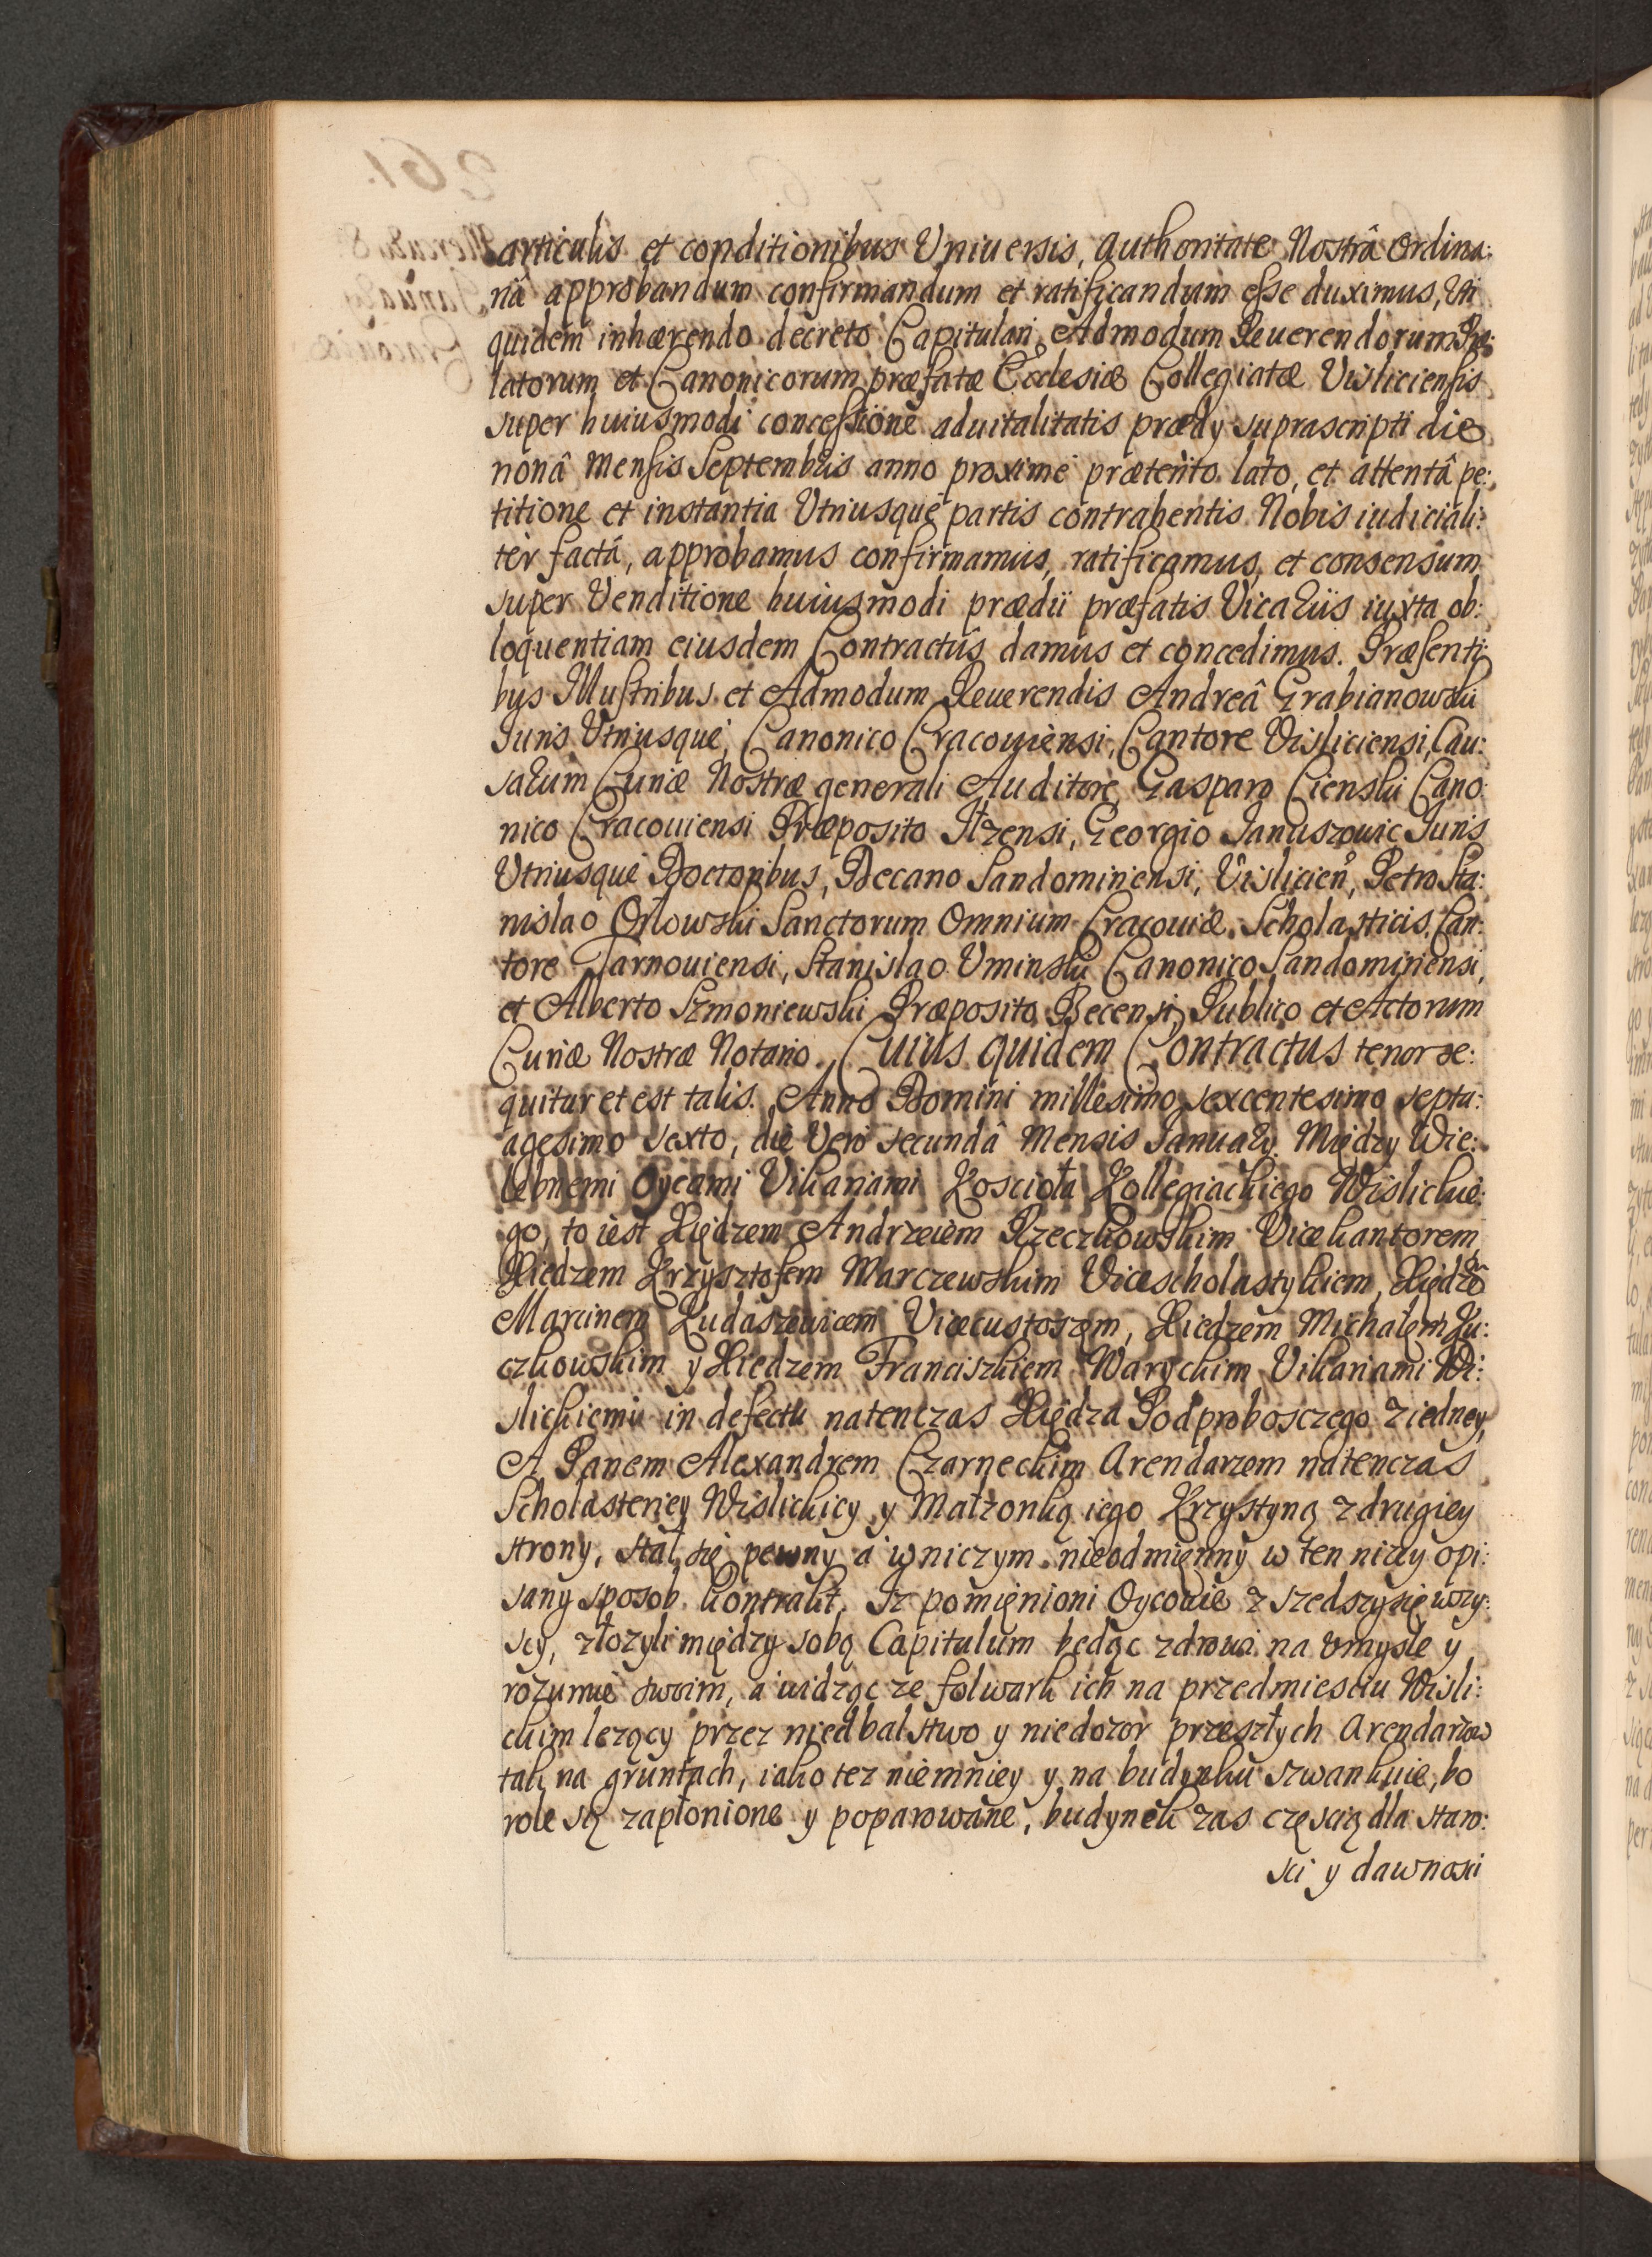 articulis et conditionibus Vniuersis, authoritate Nostrâ ordina:
riâ approbandum confirmandum et ratificandum esse duximus, Vti
quidem inhærendo decreto Capitulari, Admodum Reuerendorum Præ:
latorum et Canonicorum præfatæ Ecclesiæ Collegiatæ Visliciensis
super huiusmodi concessione aduitalitatis prædy suprascripti die
nonâ mensis Septembris anno proxime præterito lato, et attentâ pe:
titione et instantia Vtriusque partis contrahentis Nobis iudiciali:
ter factâ, approbamus confirmamus, ratificamus, et consensum
super Venditione huiusmodi prædii præfatis Vicariis iuxta ob:
loquentiam eiusdem Contractûs damus et concedimus. Præsenti:
bus Illustribus et Admodum Reuerendis Andreâ Grabianowski
Iuris Vtriusque, Canonico Cracouiensi, Cantore Visliciensi, Cau:
sarum Curiæ Nostræ generali Auditore, Gasparo Cienski Cano:
nico Cracouiensi Præposito Ilzensi, Georgio Januszowic Iuris
Vtriusque Doctoribus, Decano Sandomiriensi, Vislicien, Petro Sta:
nislao Orlowski Sanctorum Omnium Cracouiæ, Scholasticis, Can:
tore Tarnouiensi, Stanislao Vminski Canonico Sandomiriensi,
et Alberto Szmoniewski Præposito Becensi, Publico et Actorum
Curiæ Nostræ Notario. Cuius quidem Contractus tenor se:
quitur et est talis. Anno Domini millesimo sexcentesimo septu:
agesimo sexto, die Vero secundâ Mensis Januarij. Między Wie:
lebnemi Oycami Vikariami Koscioła Kollegiackiego Wislickie:
go, to iest Xiędzem Andrzeiem Rzeczkowskim Vicekantorem
Xiedzem Krzysztofem Marczewskim Vicescholastykiem, Xiędzem
Marcinem Kudaszewicem Vicecustoszem, Xiedzem Michałem Ku:
czkowskim y Xiedzem Franciszkiem Waryckim Vikariami Wi:
slickiemi in defectu natenczas Xiędza Podproboszczego z iedney,
A Panem Alexandrem Czarneckim Arendarzem natenczas
Scholasteriey Wislickiey y Małżonką iego Krzystyną z drugiey
strony, stał się pewny a wniczym nieodmięnny w ten nizey opi:
sany sposob kontrakt. Iz pomięnioni Oycowie z szedszysię wszy:
scy, złozyli między sobą Capitulum będąc zdrowi na vmysle y
rozumie swoim, a widząc ze folwark ich na przedmiesciu Wisli:
ckim lezący przez niedbalstwo y niedozor przeszłych Arendarzow
tak na gruntach, iako tez niemniey y na budynku szwankuie, bo
role są zapłonione y poparowane, budynek zas częscią dla staro:
sci y dawnosci